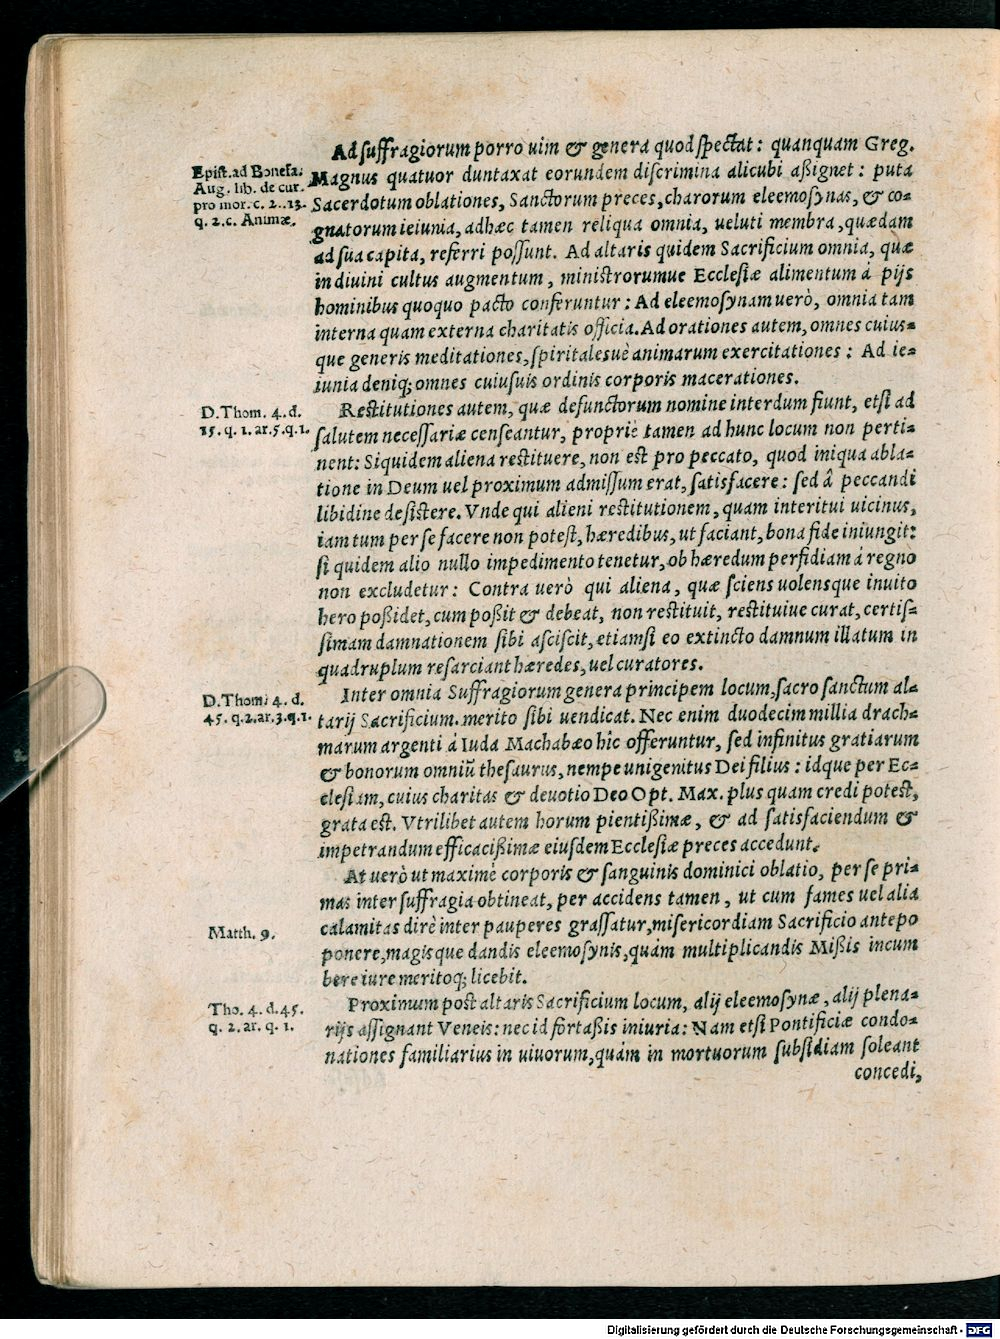 Ad suffragiorum porrò uim & genera quod spectat: quanquam Greg.
Epist. ad Bonefa.
Aug. lib. de cur.
pro mor. c. 2..13.
q. 2. c. Animæ.
Magnus quatuor duntaxat eorundem discrimina alicubi aßignet: puta
Sacerdotum oblationes, Sanctorum preces, charorum eleemosynas, & co-
gnatorum ieiunia, adhæc tamen reliqua omnia, ueluti membra, quædam
ad sua capita, referri possunt. Ad altaris quidem Sacrificium omnia, quæ
in diuini cultus augmentum, ministrorumue Ecclesiæ alimentum á pijs
hominibus quoquo pacto conferuntur: Ad eleemosynam uerò, omnia tam
interna quam externa charitatis officia. Ad orationes autem, omnes cuius-
que generis meditationes, spiritalesuè animarum exercitationes: Ad ie-
iunia deniq; omnes cuiusuis ordinis corporis macerationes.
D. Thom. 4. d.
15. q. 1. ar. 5. q. 1.
Restitutiones autem, quæ defunctorum nomine interdum fiunt, etsi ad
salutem necessariæ censeantur, propriè tamen ad hunc locum non perti-
nent: Siquidem aliena restituere, non est pro peccato, quod iniqua abla-
tione in Deum uel proximum admissum erat, satisfacere: sed â peccandi
libidine desistere. Vnde qui alieni restitutionem, quam interitui uicinus,
iam tum per se facere non potest, hæredibus, ut faciant, bona fide iniungit:
si quidem alio nullo impedimento tenetur, ob hæredum perfidiam á regno
non excludetur: Contra uerò qui aliena, quæ sciens uolensque inuito
hero poßidet, cum poßit & debeat, non restituit, restituiue curat, certis-
simam damnationem sibi asciscit, etiamsi eo extincto damnum illatum in
quadruplum resarciant hæredes, uel curatores.
D. Thom. 4. d.
45. q. 2. ar. 3. q. 1.
Inter omnia Suffragiorum genera principem locum, sacro sanctum al-
tarij Sacrificium. merito sibi uendicat. Nec enim duodecim millia drach-
marum argenti á Iuda Machabæo hîc offeruntur, sed infinitus gratiarum
& bonorum omniũ thesaurus, nempe unigenitus Dei filius: idque per Ec-
clesiam, cuius charitas & deuotio Deo Opt. Max. plus quam credi potest,
grata est. Vtrilibet autem horum pientißimæ, & ad satisfaciendum &
impetrandum efficacißimæ eiusdem Ecclesiæ preces accedunt.
At uerò ut maximè corporis & sanguinis dominici oblatio, per se pri-
mas inter suffragia obtineat, per accidens tamen, ut cum fames uel alia
Matth. 9.
calamitas dirè inter pauperes grassatur, misericordiam Sacrificio antepo
ponere, magisque dandis eleemosynis, quám multiplicandis Mißis incum
bere iure meritoq; licebit.
Tho. 4. d. 45.
q. 2. ar. q. 1.
Proximum post altaris Sacrificium locum, alij eleemosynæ, alij plena-
rijs assignant Veneis: nec id fortaßis iniuria: Nam etsi Pontificiæ condo-
nationes familiarius in uiuorum, quám in mortuorum subsidiam soleant
concedi,
Digitalisierung gefördert durch die Deutsche Forschungsgemeinschaft - DFG